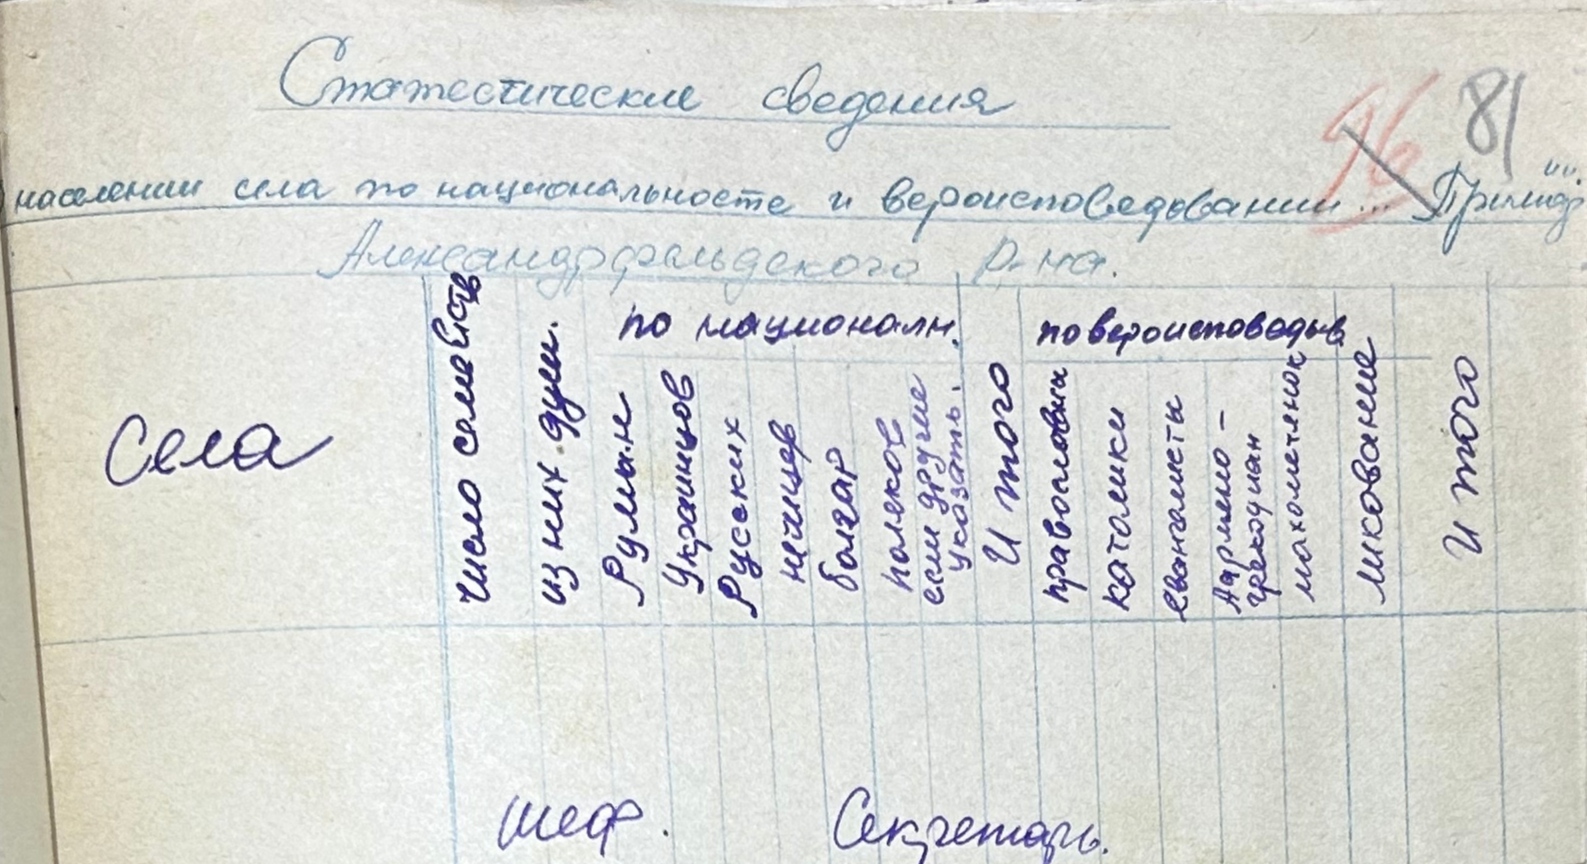 Статестические сведения
81
96
населении села по национальносте и вероисповедовании...
Александрфельдского р-на.
Села
Число семейств
из них душ.
по национальн.
Румын
Украинцов
Русских
немцев
болгар
поляков
если другие
указать.
И того
по вероисповедыв
православных
католики
евангелисты
Аармено-
грекодиан
махомеченок
И того
шеф.
Секретарь.